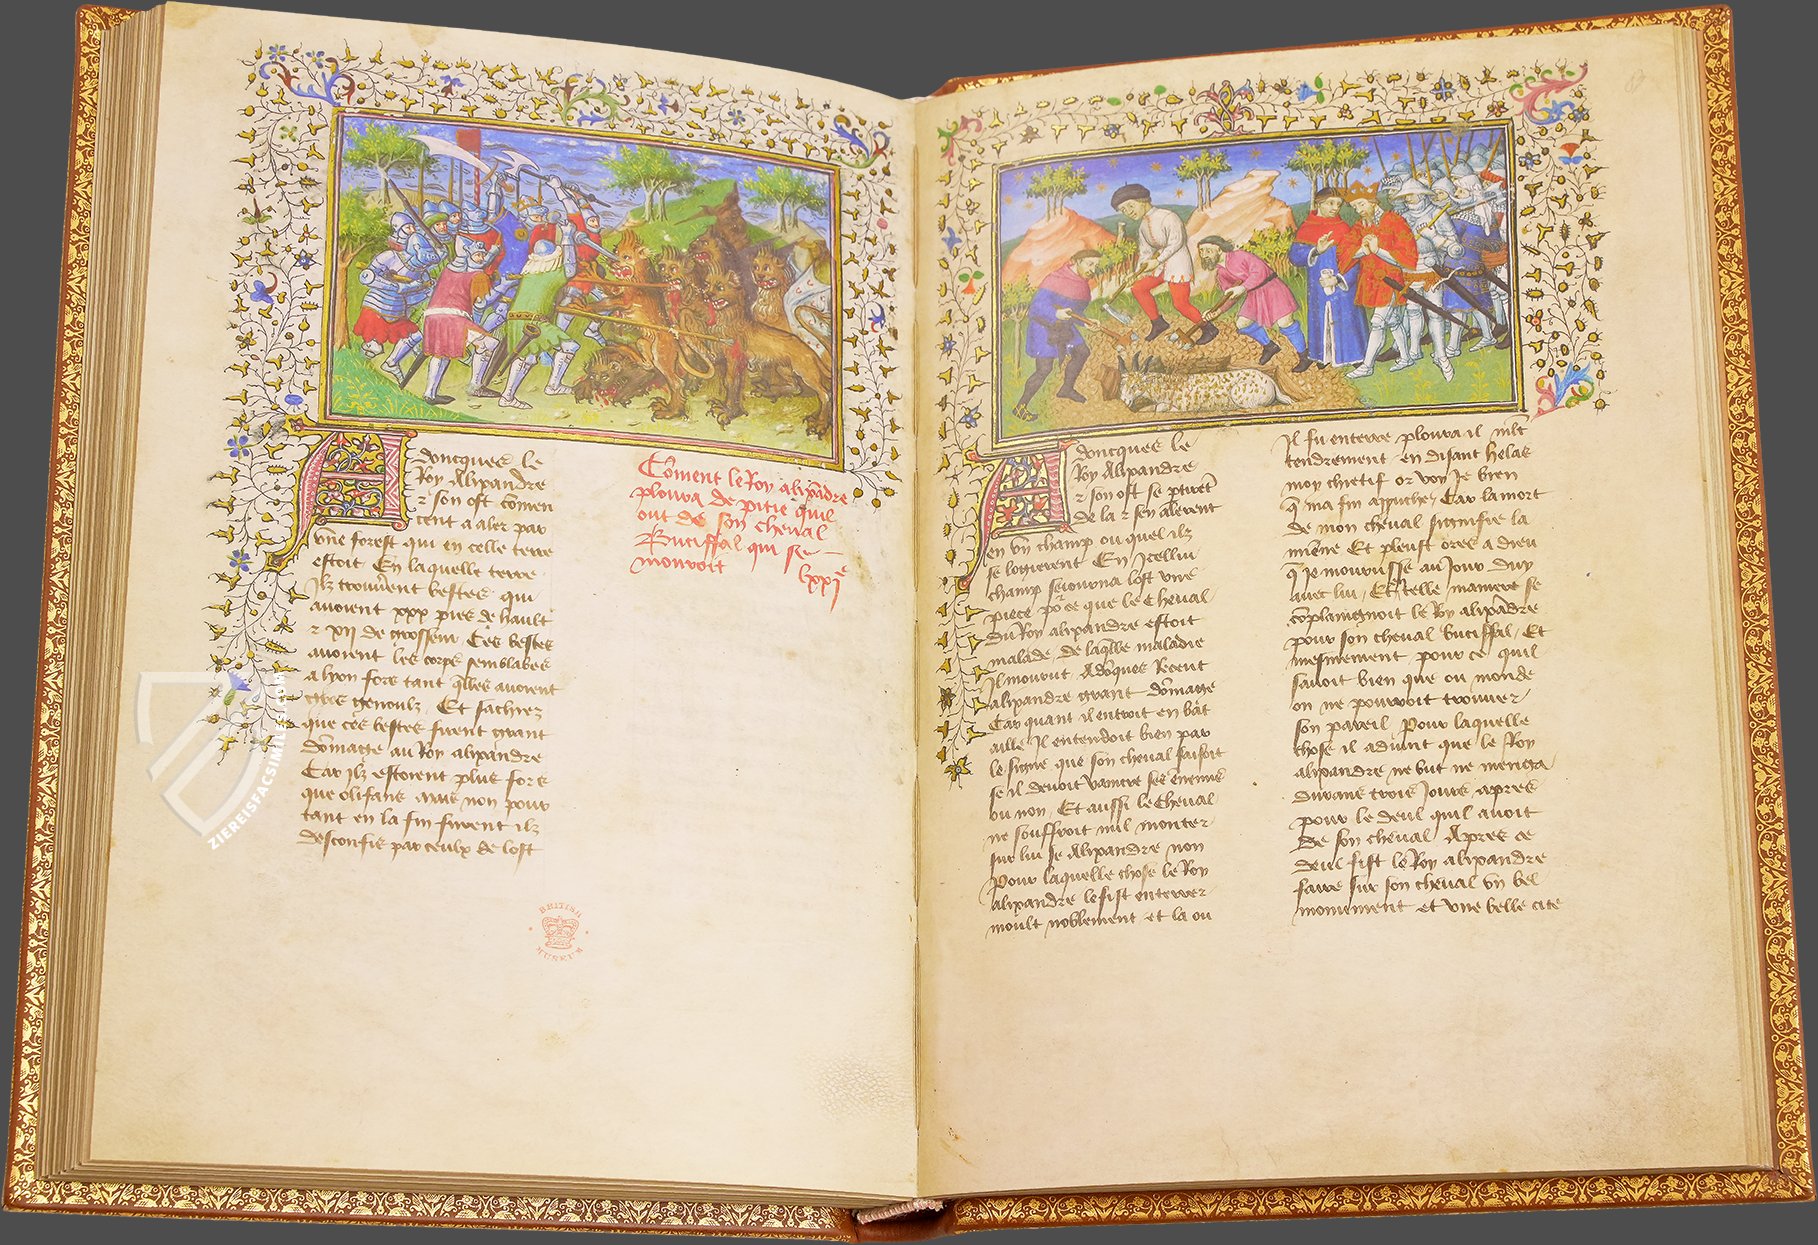 Adoncques le
Roy Alixandre
⁊ son ost comen
cent a aler par
vne forest qui en celle terre
estoit En laquelle terre
Ilz trouuerent bestes qui
auoient xxx pies de hault
⁊ xii de grosseur Ces bestes
auoient les corps semblables
a lyon fors tant qlles auoient
genoulz. Et sachiez
que ces bestes firent grant
domage au Roy alixandre
Car ilz estoient plus fors
que olifans mais non pour
tant en la fin furent ilz
desconfis par ceulx de lost
Coment le Roy alixādre
ploura de pitie quil
out de son cheval
Buciffal qui se
mouroit lxxi^e
BRITISH
MUSEUM
ZIEREISFACSIMILES.COM
87
Adoncques le
Roy Alixandre
⁊ son ost se ptiret
de la ⁊ sen alerent
en vn champ ou quel ilz
se logierent En Icellui
champ seiourna lost vne
piece po^r ce que le cheual
du Roy alixandre estoit
malade, de laqlle maladie
Il mourut Adoques Recent
alixandre grant domage
Car quant il entroit en bat
aille Il entendoit bien par
le signe que son cheual faisoit
se il deuoit vaincre ses enemis
ou non, Et aussi le cheual
ne souffroit nul monter
sur lui se Alixandre non
Pour laquelle chose le Roy
alixandre le fist enterrer
moult noblement et la ou
Il fu enterre ploura il mlt
tendrement en disant helas
moy chetif or voy Je bien
q̄ ma fin apruche, Car la mort
de mon cheual signifie la
miene Et pleust ores a dieu
q̄ Je mourusse au Jour duy
auec lui, Et telle maniere se
coplaignoit le Roy alixādre
pour son cheual buciffal, Et
mesmement pour ce quil
sauoit bien que ou monde
on ne pourroit trouuer
son pareil, Pour laquelle
chose il aduint que le Roy
alixandre ne but ne menga
durans trois Jours apres
pour le deul quil auoit
De son cheual Apres ce
deul fist le Roy alixandre
faire sur son cheual vn bel
monument et vne belle cite